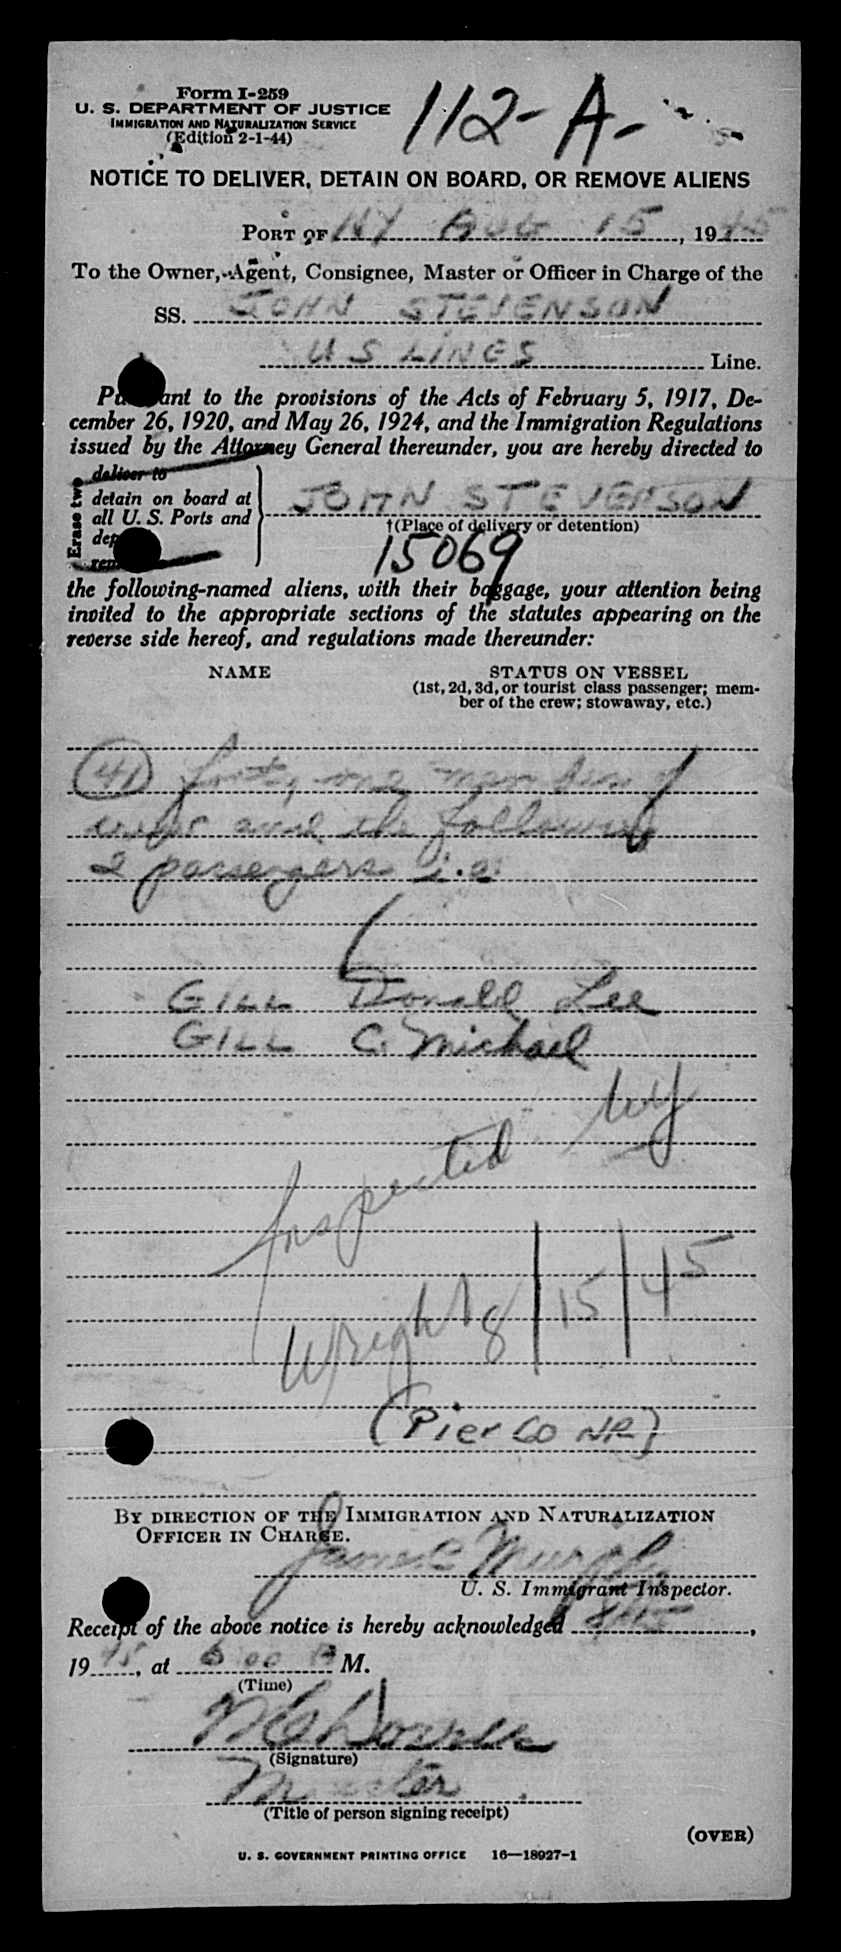 Form I-259
U. S. DEPARTMENT OF JUSTICE
IMMIGRATION AND NATURALIZATION SERVICE
(Edition 2-1-44)
112-A-
NOTICE TO DELIVER, DETAIN ON BOARD, OR REMOVE ALIENS
PORT OF NY AUG 15, 1945
To the Owner, Agent, Consignee, Master or Officer in Charge of the
SS. JOHN STEVENSON
US LINES Line.
Pursuant to the provisions of the Acts of February 5, 1917, De-
cember 26, 1920, and May 26, 1924, and the Immigration Regulations
issued by the Attorney General thereunder, you are hereby directed to
Erase two
deliver to
detain on board at
all U. S. Ports and
JOHN STEVENSON
†(Place of delivery or detention)
15069
the following-named aliens, with their baggage, your attention being
invited to the appropriate sections of the statutes appearing on the
reverse side hereof, and regulations made thereunder:
NAME STATUS ON VESSEL
(1st, 2d, 3d, or tourist class passenger; mem-
ber of the crew; stowaway, etc.)
(41) forty one members of
crew and the following
2 passengers i.e.
GILL Donald Lee
GILL C. Michael
Inspected by
Wright 8/15/45
(Pier 60 NR)
BY DIRECTION OF THE IMMIGRATION AND NATURALIZATION
OFFICER IN CHARGE.
James Murphy
U. S. Immigrant Inspector.
Receipt of the above notice is hereby acknowledged 8/15,
1945, at 6 00 P M.
(Time)
(Signature)
Master
(Title of person signing receipt)
(OVER)
U. S. GOVERNMENT PRINTING OFFICE 16—18927-1